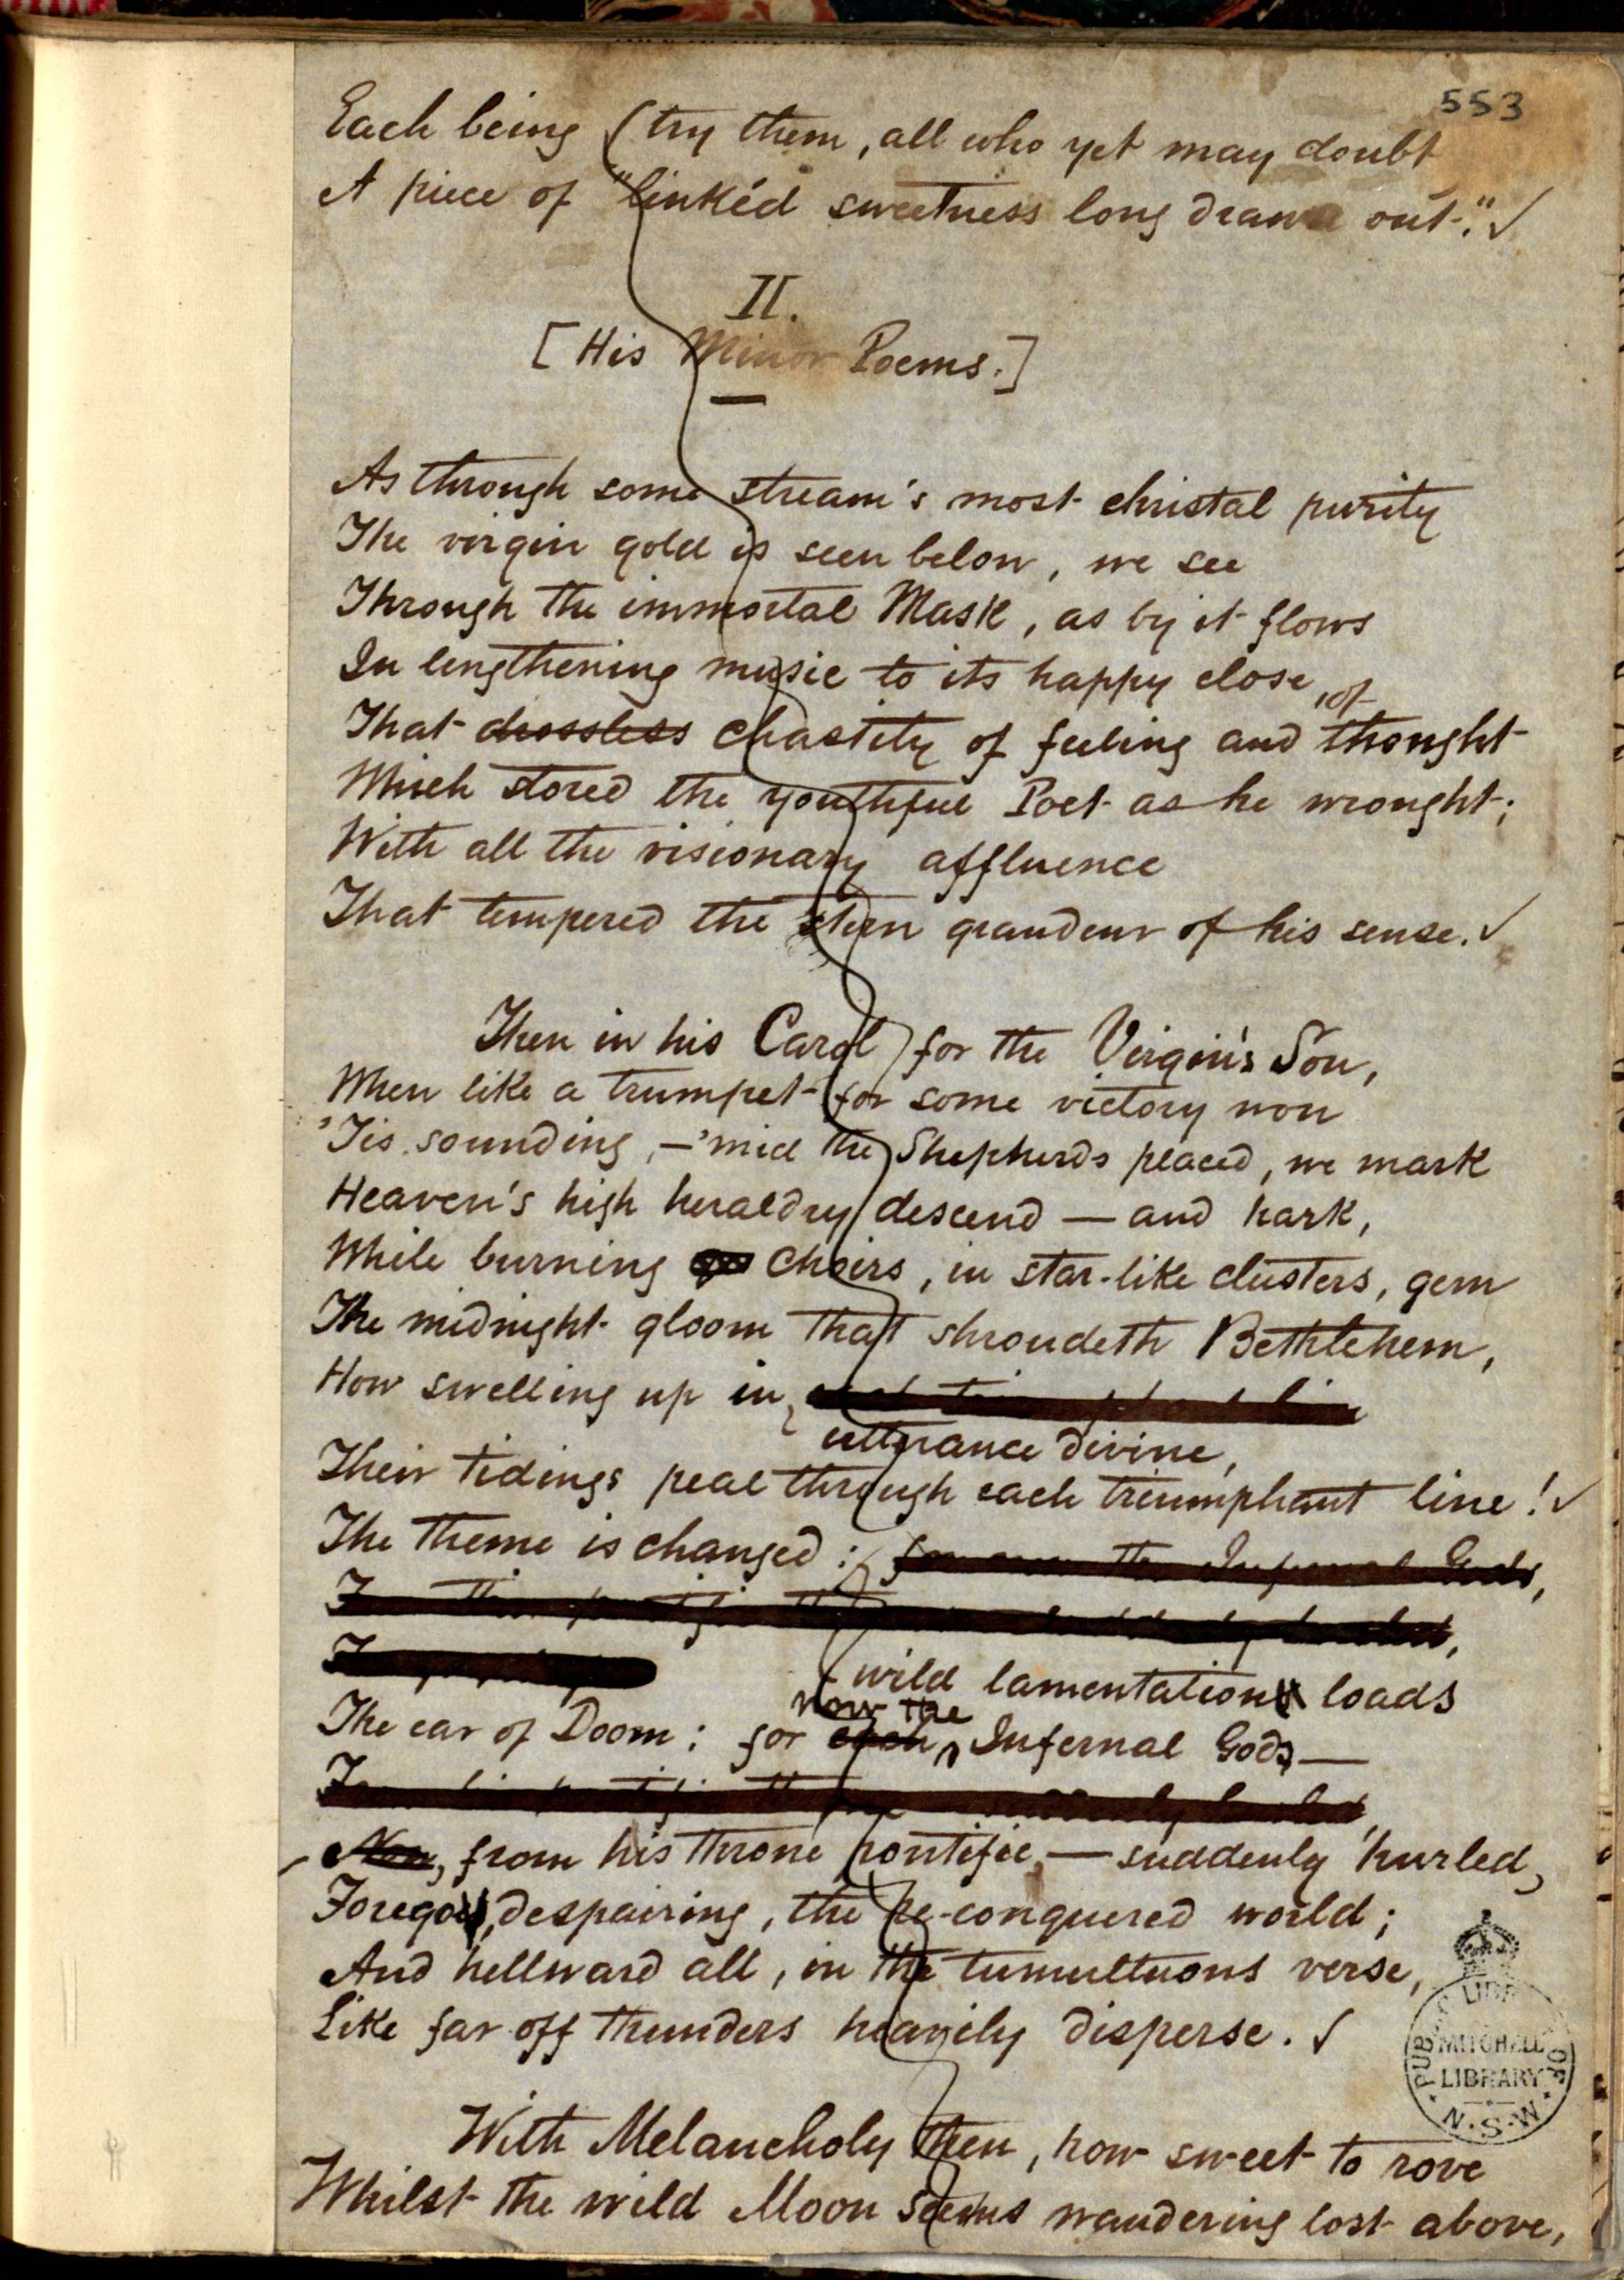 553
Each being (try them, all who yet may doubt
A piece of "linkéd sweetness long drawn out." ✓
II.
[His Minor Poems.]
As through some stream's most christal purity
The virgin gold is seen below, we see
Through the immortal Mask, as by it flows
In lengthening music to its happy close,
That drossless chastity of feeling and of thought
Which stored the youthful Poet as he wrought;
With all the visionary affluence
That tempered the stern grandeur of his sense. ✓
Then in his Carol for the Virgin's Son,
When like a trumpet for some victory won
'Tis sounding, —'mid the Shepherds placed, we mark
Heaven's high heraldry descend — and hark,
While burning Choirs, in star-like clusters, gem
The midnight gloom that shroudeth Bethlehem,
How swelling up in
utterance divine,
Their tidings peal through each triumphant line! ✓
The theme is changed: for now the Infernal Gods,
wild lamentation loads
now the
The ear of Doom: for each Infernal Gods—
Now, from his throne pontific,— suddenly hurled,
Forego, despairing, the re-conquered world;
And hellward all, in the tumultuous verse,
Like far off thunders heavily disperse. ✓
With Melancholy then, how sweet to rove
Whilst the wild Moon seems wandering lost above,
PUBLIC LIBRARY OF N.S.W.
MITCHELL
LIBRARY